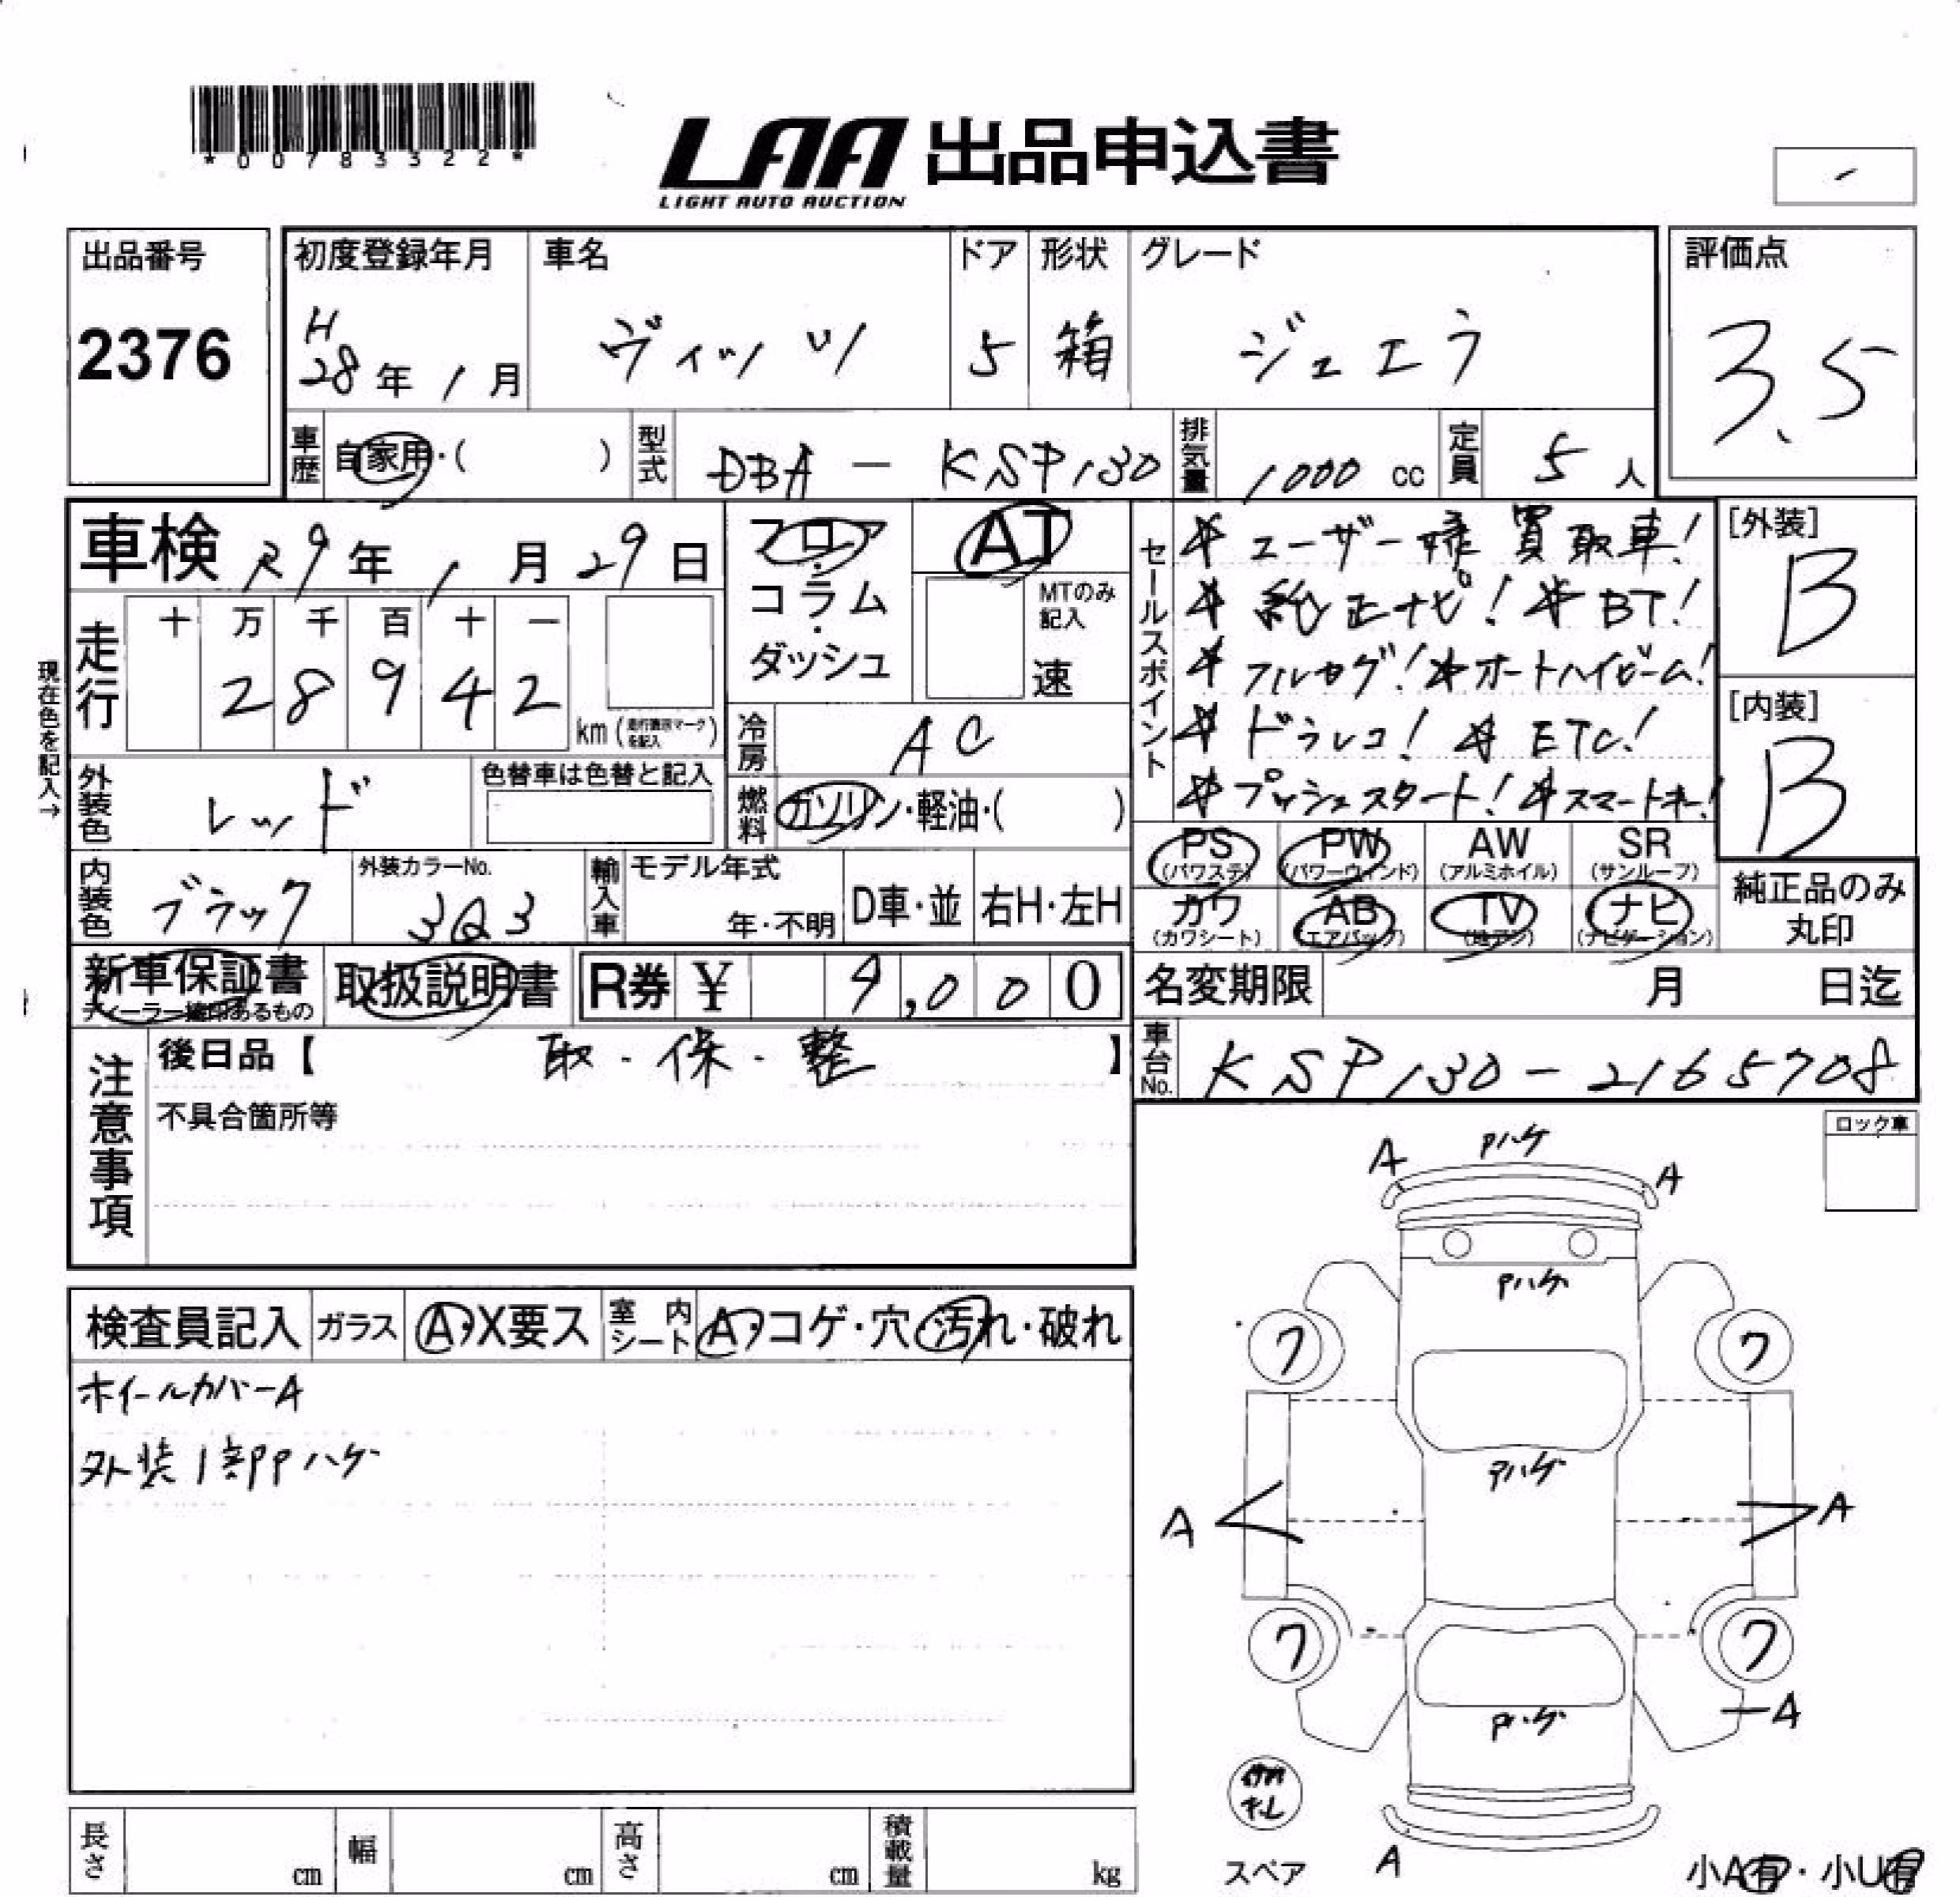 *00783322*
LAA 出品申込書
LIGHT AUTO AUCTION
-
出品番号
2376
初度登録年月
H
28年1月
車名
ヴィッツ
ドア
5
形状
箱
グレード
ジュエラ
評価点
3.5
車歴
自家用・( )
型式
DBA - KSP130
排気量
1000 cc
定員
5人
車検 R9年1月29日
走行
十 万 千 百 十 一
2 8 9 4 2
km (走行表示マークを記入)
現在色を記入→
フロア
コラム
ダッシュ
AT
MTのみ記入
速
冷房
AC
燃料
ガソリン・軽油・( )
外装色
レッド
色替車は色替と記入
内装色
ブラック
外装カラーNo.
3Q3
輸入車
モデル年式
年・不明
D車・並
右H・左H
セールスポイント
* ユーザー様買取車!
* 純正ナビ! * BT!
* フルセグ! * オートハイビーム!
* ドラレコ! * ETC!
* プッシュスタート! * スマートキー!
[外装]
B
[内装]
B
PS (パワステ) PW (パワーウィンド) AW (アルミホイル) SR (サンルーフ)
カワ (カワシート) AB (エアバッグ) TV (地デジ) ナビ (ナビゲーション)
純正品のみ
丸印
新車保証書
ディーラー捺印あるもの
取扱説明書
R券 ¥ 9,000
名変期限 月 日迄
車台No.
KSP130-2165708
注意事項
後日品【 取・保・整 】
不具合箇所等
ロック車
検査員記入 ガラス A・X要ス 室内シート A・コゲ・穴・汚れ・破れ
ホイールカバーA
外装1部Pハゲ
A Pハゲ A
Pハゲ
ワ ワ
Pハゲ
A A
ワ ワ
Pハゲ
A
スペア
A
小A有・小U有
長さ cm 幅 cm 高さ cm 積載量 kg